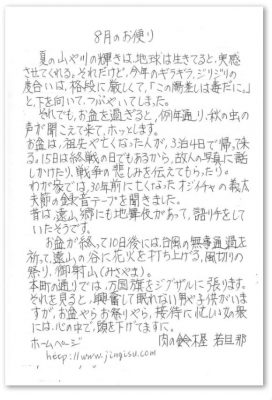 8月のお便り
夏の山や川の輝きは、地球は生きてると、実感
させてくれる。それだけど、今年のギラギラ、ジリジリの
度合いは、格段に厳しくて、「この陽差しは毒だに。」
と、下を向いて、つぶやいてしまう。
それでも、お盆を過ぎると、例年通り、秋の虫の
声が聞こえて来て、ホッとします。
お盆は、祖先や亡くなった人が、3泊4日で帰って来
る。15日は終戦の日でもあるから、故人の写真に話
しかけたり、戦争の悲しみを伝えてもらう。
わが家では、30年前に亡くなったオジイチャの義太
夫節の録音テープを聞きました。
昔は、遠山郷にも地舞伎があって、語り手をして
いたそうです。
お盆が終って10日後には、台風の無事通過を
祈って、遠山の谷に花火を打ち上げる、風切りの
祭り、御射山（みさやま）。
本町の通りでは、万国旗をジグザグに張ります。
それを見ると、興奮して眠れない男や子供がいま
すが、お盆やらお祭りやら、接待に忙しい女の衆
には、心の中で、頭を下げてますに。
ホームページ 肉の鈴木屋 若旦那
http://www.jingisu.com/